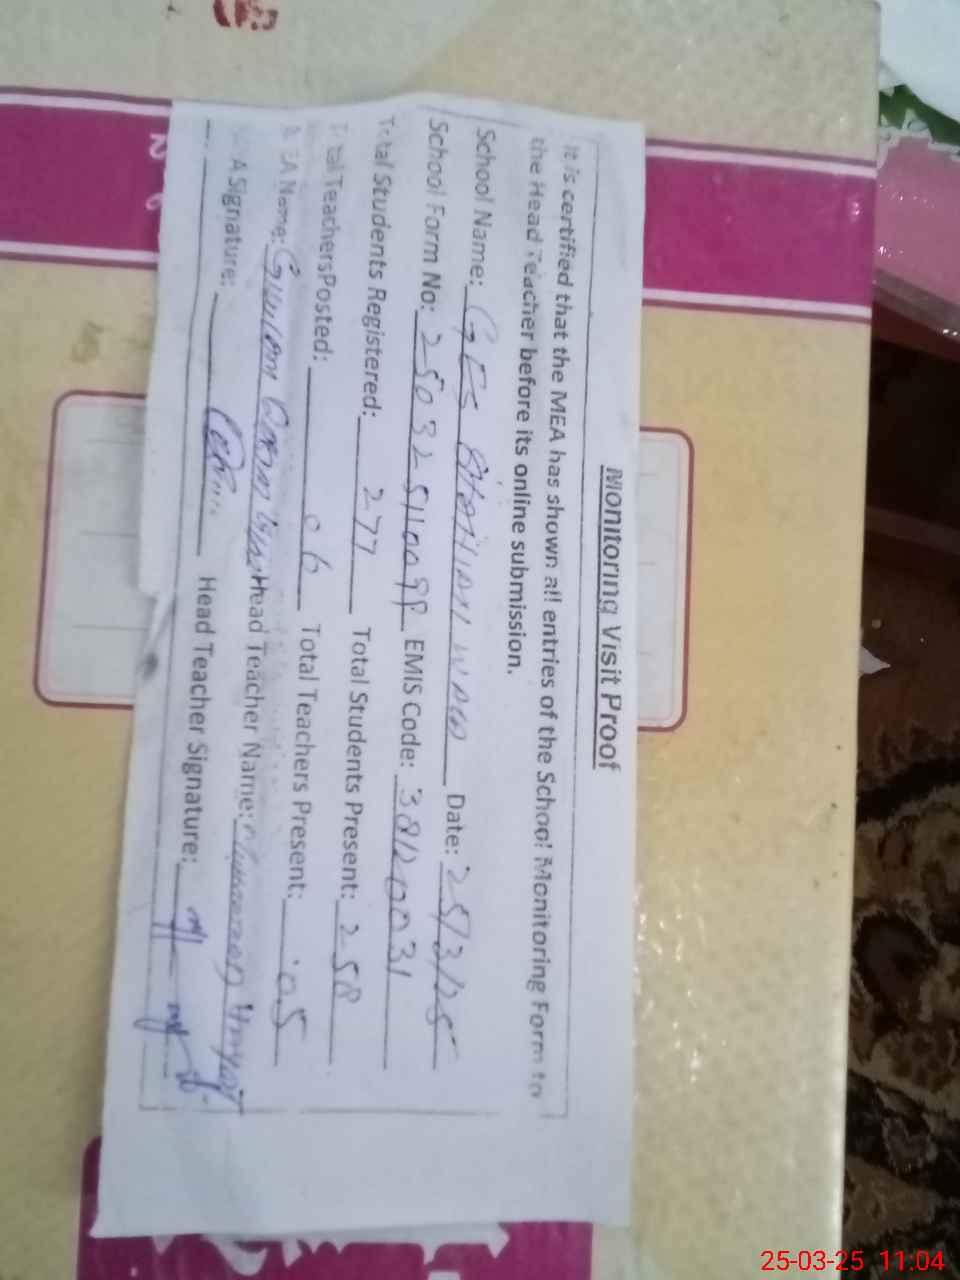 Monitoring Visit Proof
It is certified that the MEA has shown all entries of the School Monitoring Form to
the Head Teacher before its online submission.
School Name: GES Date: 25/3/25
School Form No: EMIS Code: 38120031
Total Students Registered: 277 Total Students Present: 258
Total TeachersPosted: 06 Total Teachers Present: 05
MEA Name: Ghulam Head Teacher Name:
MEA Signature: Head Teacher Signature:
25-03-25 11:04